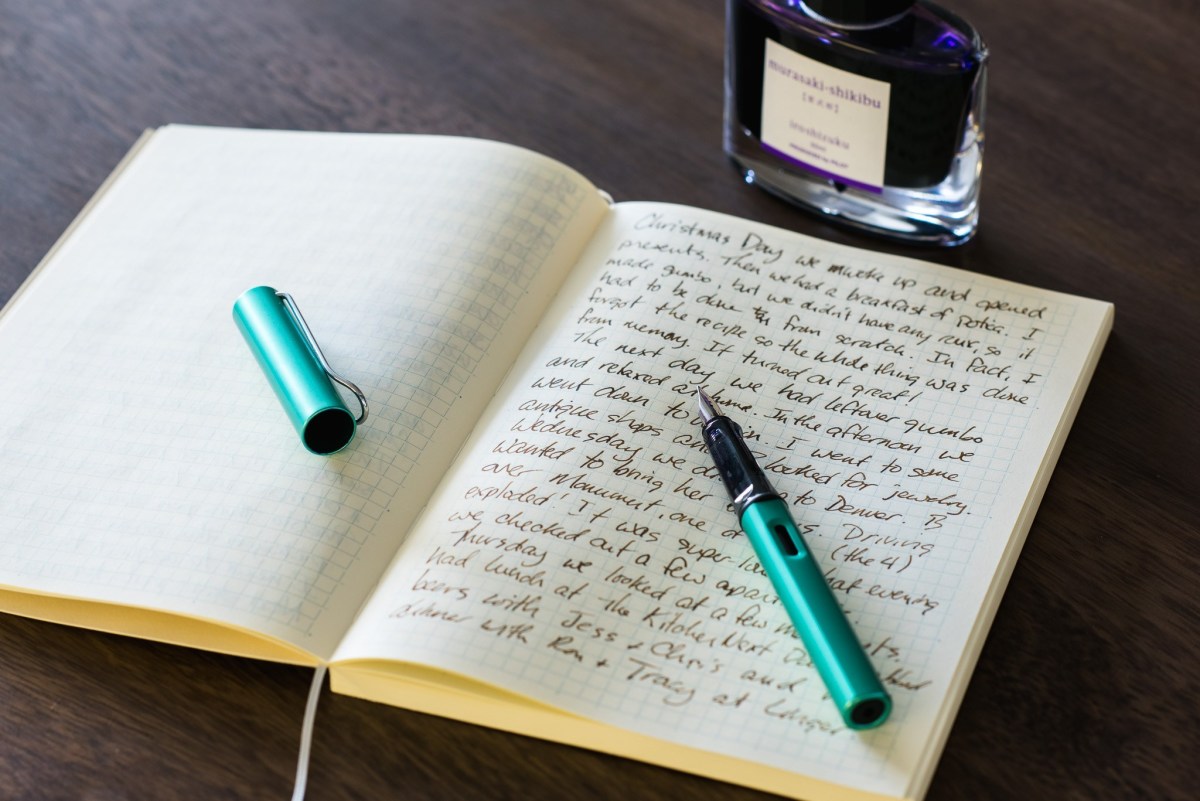 murasaki-shikibu
iroshizuku
Christmas Day we up and opened
presents. Then we had a breakfast of Potica. I
made gumbo, but we didn't have any rux, so it
had to be done from scratch. In fact, I
forgot the recipe so the whole thing was done
from memory. It turned out great!
The next day we had leftover gumbo
and relaxed at home. In the afternoon we
went down to I went to some
antique shops and looked for jewelry.
Wednesday we to Denver. B
wanted to bring her Driving
over Monument, one of (the 4)
exploded! It was that evening
we checked out a few
Thursday we looked at a few
had lunch at the Kitchen Next
beers with Jess + Chris and
dinner with Ron + Tracy at